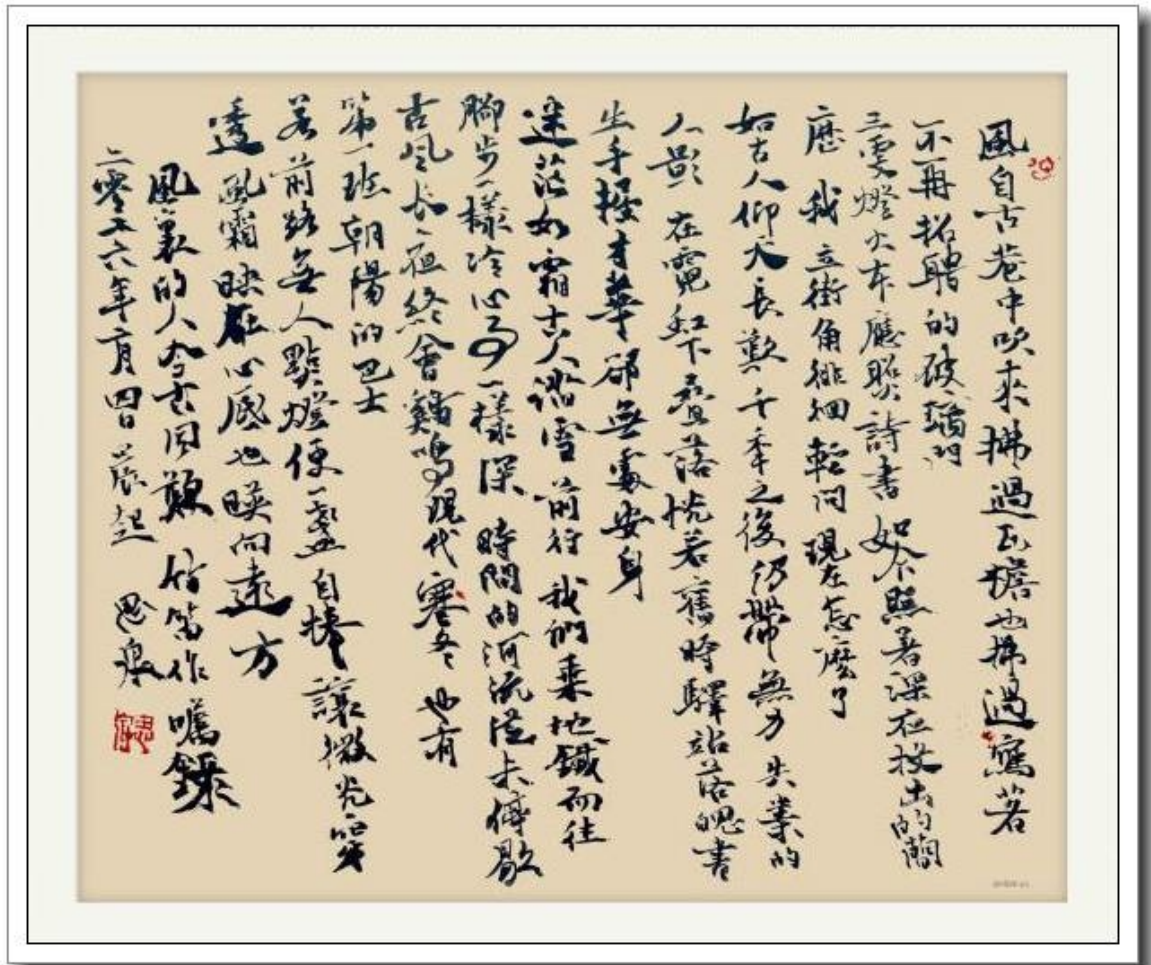 風自古巷中吹來拂過瓦檐也拂過寫著
不再招聘的玻璃門
三更燈火本應照詩書 如今照著深夜投出的簡
歷 我立街角徘徊輕問 現在怎麼了
如古人仰天長歎 千年之後仍帶無力 失業的
人影 在霓虹下疊落恍若舊時驛站落魄書
生手握才華 卻無處安身
迷茫如霜古人踏雪 前行 我們乘地鐵而往
腳步一樣冷心事一樣深 時間的河流從未停歇
古風長夜終會雞鳴現代寒冬 也有
第一班朝陽的巴士
若前路無人點燈便一盞自捧 讓微光穿
透風霜映在心底也映向遠方
風裏的人今古同顏 借笛作囑錄
二零二六年二月四日晨起 思泉